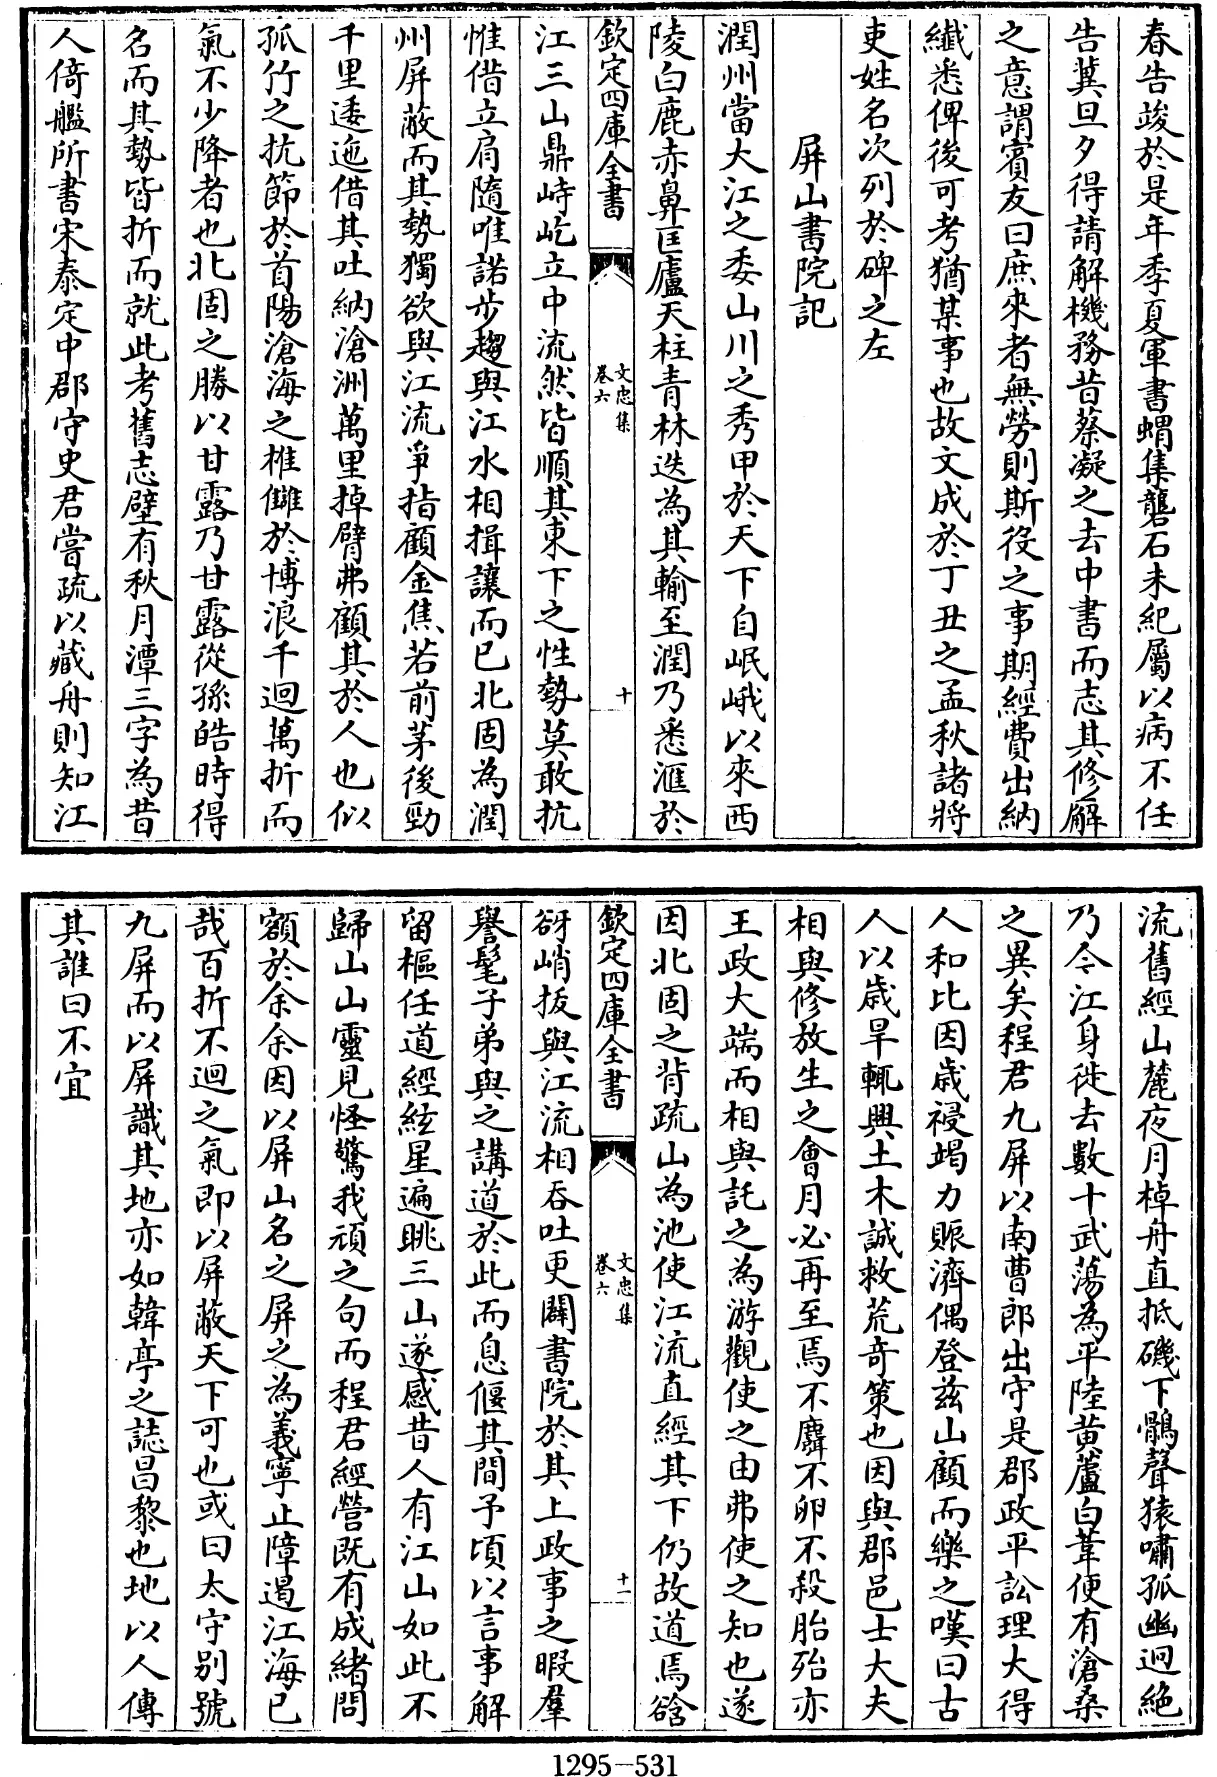 春告竣於是年季夏軍書蝟集礱石未紀屬以病不任
告冀旦夕得請解機務昔蔡凝之去中書而志其修廨
之意謂賓友曰庶來者無勞則斯役之事期經費出納
纖悉俾後可考猶某事也故文成於丁丑之孟秋諸將
吏姓名次列於碑之左
屏山書院記
潤州當大江之委山川之秀甲於天下自岷峨以來西
陵白鹿赤鼻匡廬天柱青林迭為其輸至潤乃悉滙於
欽定四庫全書
文忠集
卷六
十
江三山鼎峙屹立中流然皆順其東下之性勢莫敢抗
惟借立肩隨唯諾步趨與江水相揖讓而已北固為潤
州屏蔽而其勢獨欲與江流爭指顧金焦若前茅後勁
千里逶迤借其吐納滄洲萬里掉臂弗顧其於人也似
孤竹之抗節於首陽滄海之椎讎於博浪千迴萬折而
氣不少降者也北固之勝以甘露乃甘露從孫皓時得
名而其勢皆折而就此考舊志壁有秋月潭三字為昔
人倚艦所書宋泰定中郡守史君嘗疏以藏舟則知江
流舊經山麓夜月棹舟直抵磯下鶻聲猿嘯孤幽迥絶
乃今江身徙去數十武蕩為平陸黄蘆白葦便有滄桑
之異矣程君九屏以南曹郎出守是郡政平訟理大得
人和比因歲祲竭力賑濟偶登兹山顧而樂之嘆曰古
人以歲旱輒興土木誠救荒奇策也因與郡邑士大夫
相與修放生之會月必再至焉不麛不卵不殺胎殀亦
王政大端而相與託之為游觀使之由弗使之知也遂
因北固之背疏山為池使江流直經其下仍故道焉谽
欽定四庫全書
文忠集
卷六
十一
谺峭拔與江流相吞吐更闢書院於其上政事之暇羣
譽髦子弟與之講道於此而息偃其間予頃以言事解
留樞任道經絃星遍眺三山遂感昔人有江山如此不
歸山山靈見怪驚我頑之句而程君經營既有成緒問
額於余余因以屏山名之屏之為義寧止障遏江海已
哉百折不迴之氣即以屏蔽天下可也或曰太守别號
九屏而以屏識其地亦如韓亭之誌昌黎也地以人傳
其誰曰不宜
1295-531